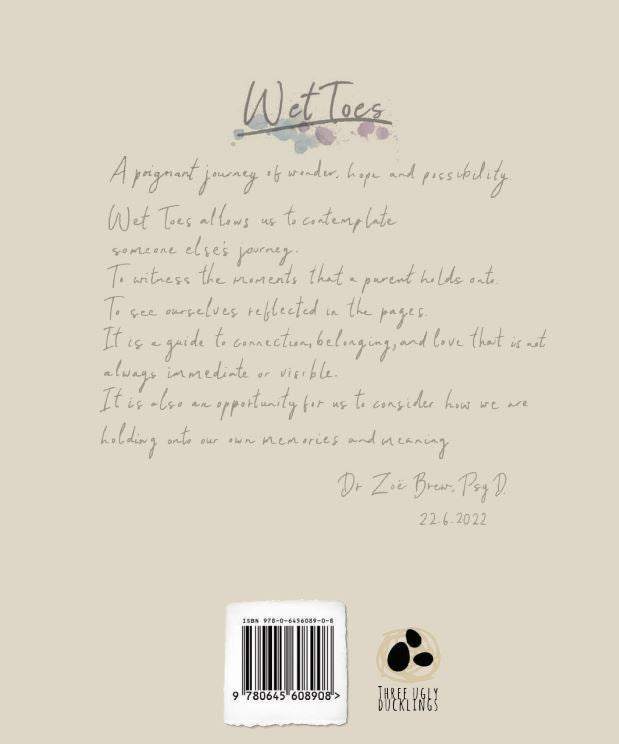 Wet Toes
A poignant journey of wonder, hope and possibility
Wet Toes allows us to contemplate
someone else's journey.
To witness the moments that a parent holds onto.
To see ourselves reflected in the pages.
It is a guide to connection, belonging, and love that is not
always immediate or visible.
It is also an opportunity for us to consider how we are
holding onto our own memories and meaning
Dr Zoë Brew, Psy D.
22.6.2022
ISBN 978-0-6456089-0-8
9 780645 608908 >
THREE UGLY
DUCKLINGS